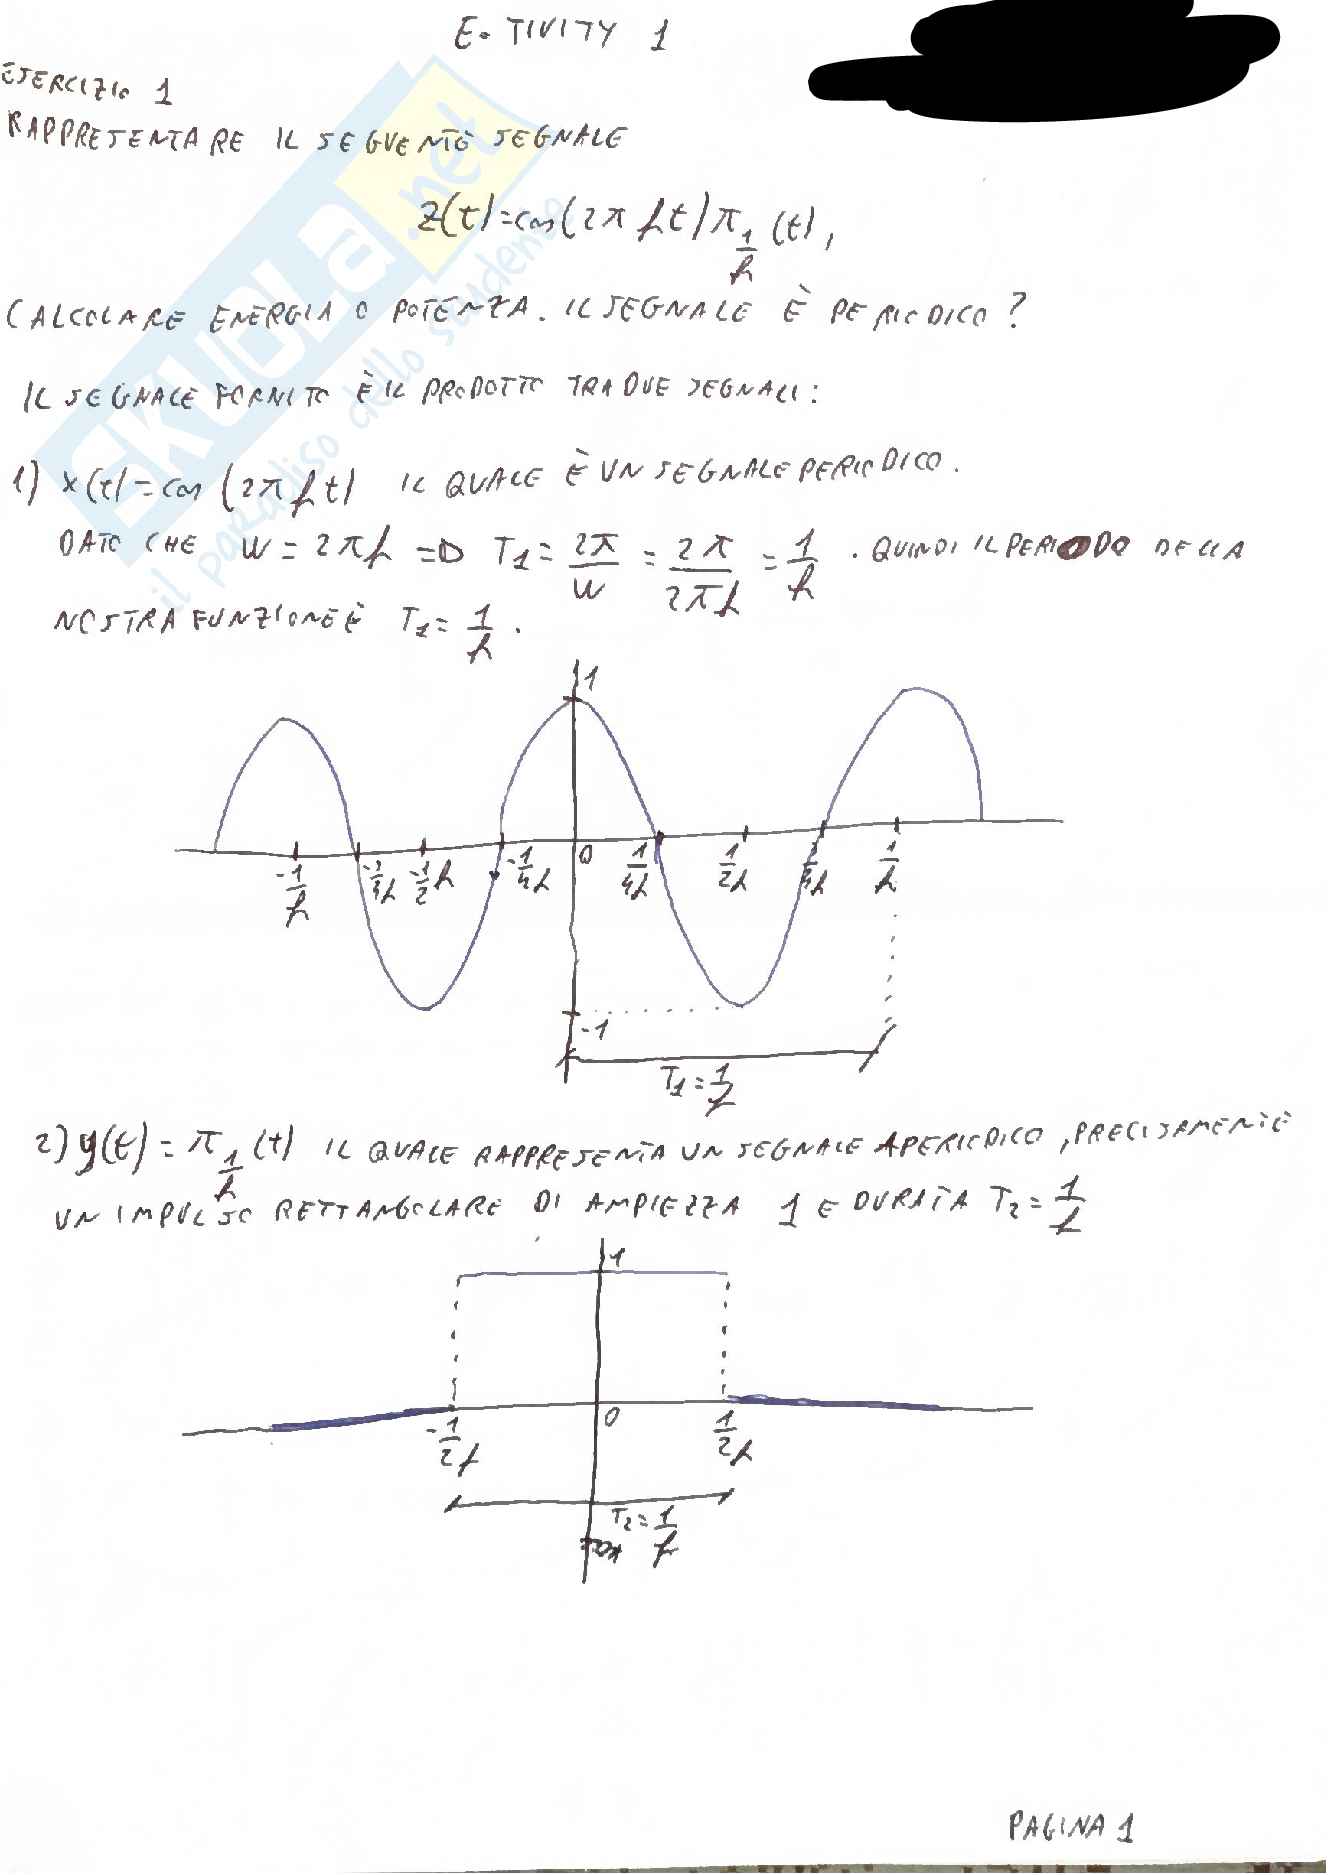 E-TIVITY 1
ESERCIZIO 1
RAPPRESENTARE IL SEGUENTE SEGNALE
z(t)=cos(2π f t) π 1/f (t),
CALCOLARE ENERGIA O POTENZA. IL SEGNALE È PERIODICO?
IL SEGNALE FORNITO È IL PRODOTTO TRA DUE SEGNALI:
1) x(t)=cos(2π f t) IL QUALE È UN SEGNALE PERIODICO.
DATO CHE W = 2πf => T1 = 2π/W = 2π/2πf = 1/f . QUINDI IL PERIODO DELLA
NOSTRA FUNZIONE È T1 = 1/f .
1
-1/f -3/4f -1/2f -1/4f 0 1/4f 1/2f 3/4f 1/f
-1
T1 = 1/f
2) y(t) = π 1/f (t) IL QUALE RAPPRESENTA UN SEGNALE APERIODICO, PRECISAMENTE
UN IMPULSO RETTANGOLARE DI AMPIEZZA 1 E DURATA T2 = 1/f
1
-1/2f 0 1/2f
T2 = 1/f
PAGINA 1
SKUOLA.net
il paradiso dello studente